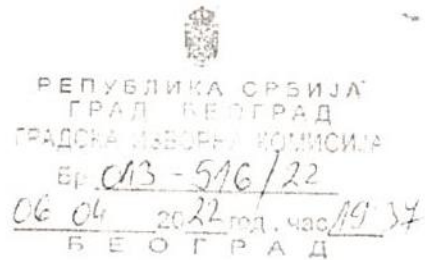 РЕПУБЛИКА СРБИЈА
ГРАД БЕОГРАД
ГРАДСКА ИЗБОРНА КОМИСИЈА
Бр. 013-516/22
06 04 2022 год. час 19:37
БЕОГРАД